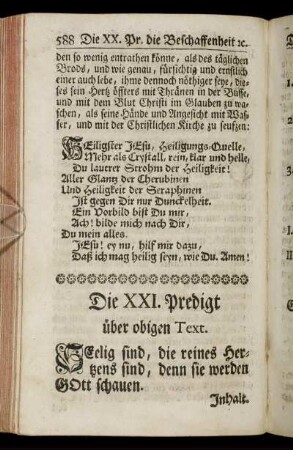 588 Die XX. Pr. die Beschaffenheit ꝛc.
den so wenig entrathen könne, als des täglichen
Brods, und wie genau, fürsichtig und ernstlich
einer auch lebe, ihme dennoch nöthiger seye, die-
ses sein Hertz öffters mit Thränen in der Busse,
und mit dem Blut Christi im Glauben zu wa-
schen, als seine Hände und Angesicht mit Was-
ser, und mit der Christlichen Kirche zu seufzen:
HEiligster JEsu, Heiligungs-Quelle,
Mehr als Crystall, rein, klar und helle,
Du lautrer Strohm der Heiligkeit!
Aller Glantz der Cherubinen
Und Heiligkeit der Seraphinen
Ist gegen Dir nur Dunckelheit.
Ein Vorbild bist Du mir,
Ach! bilde mich nach Dir,
Du mein alles.
JEsu! ey nu, hilf mir dazu,
Daß ich mag heilig seyn, wie Du. Amen!
Die XXI. Predigt
über obigen Text.
SEelig sind, die reines Her-
tzens sind, denn sie werden
GOtt schauen.
Inhalt.